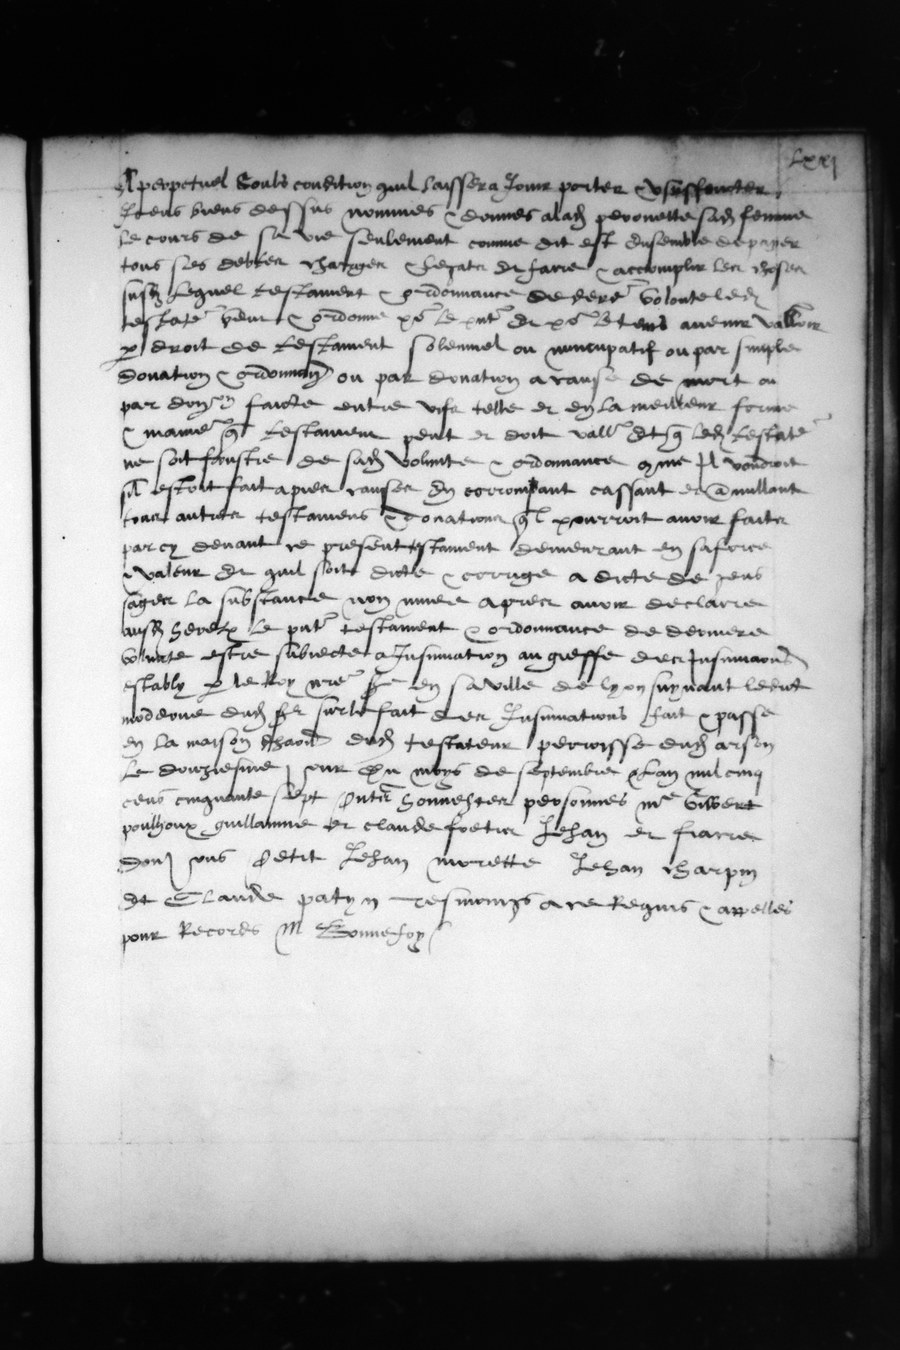 Lxxj
et perpetuel soubs condition quil laissera Jouir porter & usuffructer
Iceus biens dessus nommes & donnes a lad peronette sad femme
le cours de sa vie seulement comme dit est Ensemble de payer
tous ses debtes charges & legatz et faire & accomplir les choses
susd lequel testament & ordonnance de dere volonte led
testate veut & ordonne le pnt et le tems avenir valloir
p droit de testament solennel ou nuncupatif ou par simple
donation & ordonnan ou par donation a cause de mort ou
par donon faicte entre vifs telle et en la meilleur forme
& maniere q testament peut et doit vall Et q led testate
ne soit frustre de sad volunte & ordonnance Il vondroit
sil estoit fait apres causes En corrompant cassant et anullant
tous autres testamens & donations ql pourroit avoir faits
par cy devant ce present testament demeurant en sa force
& valeur Et quil soit dicte & corrige a dicte de gens
sages la substance non muee apres avoir declaire
ausd le pnt testament & ordonnance de derniere
volunte estre subiecte a Insinuation au greffe des Insinuaons
estably p le Roy nre sr en sa ville de lyon suyvant ledict
moderne dud sr sur le fait des Insinuations fait & passe
en la maison dhaon dud testateur perroisse dud arson
le douziesme jour du moys de septembre Lan mil cinq
cens cinquante sept pnts honnestes personnes me Gilbert
poulhoux guillaume et claude foetis Jehan et fiacre
petit Jehan morette Jehan charpin
Et Claude patyn tesmoings a ce Requis & appelles
pour Records M Bonnefoy